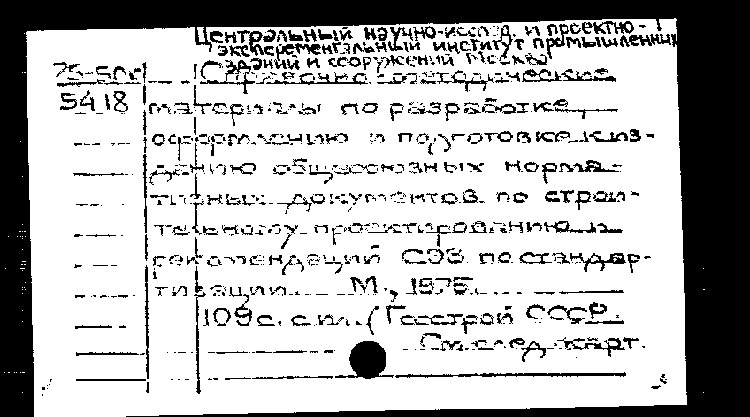 Центральный научно-исслед. и проектно-
эксперементальный институт промышленных
зданий и сооружений Москва
75-50г Справочно-методические
5418 материалы по разработке,
оформлению и подготовке к из-
данию общесоюзных норма-
тивных документов по строи-
тельному проектированию и
рекомендаций СЭВ по стандар-
тизации. М., 1975.
109с. с ил. (Госстрой СССР.
См. след. карт.